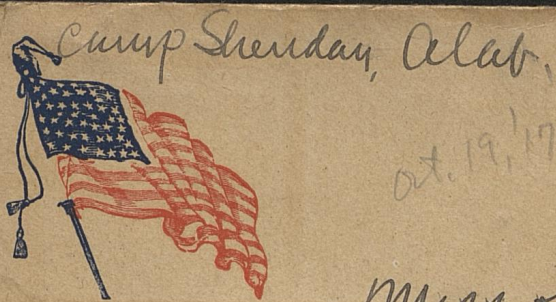 Camp Sheridan, Alab.
Oct. 19, '17